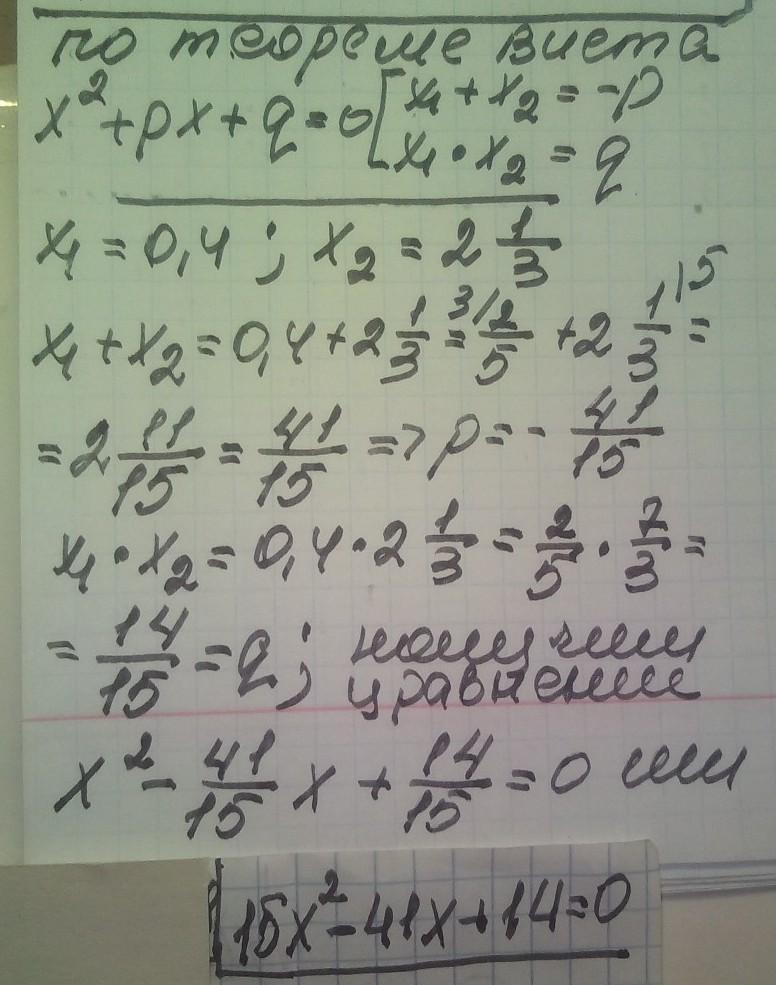 по теореме виета
x² + px + q = 0 [ x₁ + x₂ = -p
x₁ · x₂ = q
x₁ = 0,4 ; x₂ = 2 1/3
x₁ + x₂ = 0,4 + 2 1/3 = ³⁄ 2/5 + 2 1/3 |5 =
= 2 11/15 = 41/15 => p = - 41/15
x₁ · x₂ = 0,4 · 2 1/3 = 2/5 · 7/3 =
= 14/15 = q ; получим
уравнение
x² - 41/15 x + 14/15 = 0 или
15x² - 41x + 14 = 0